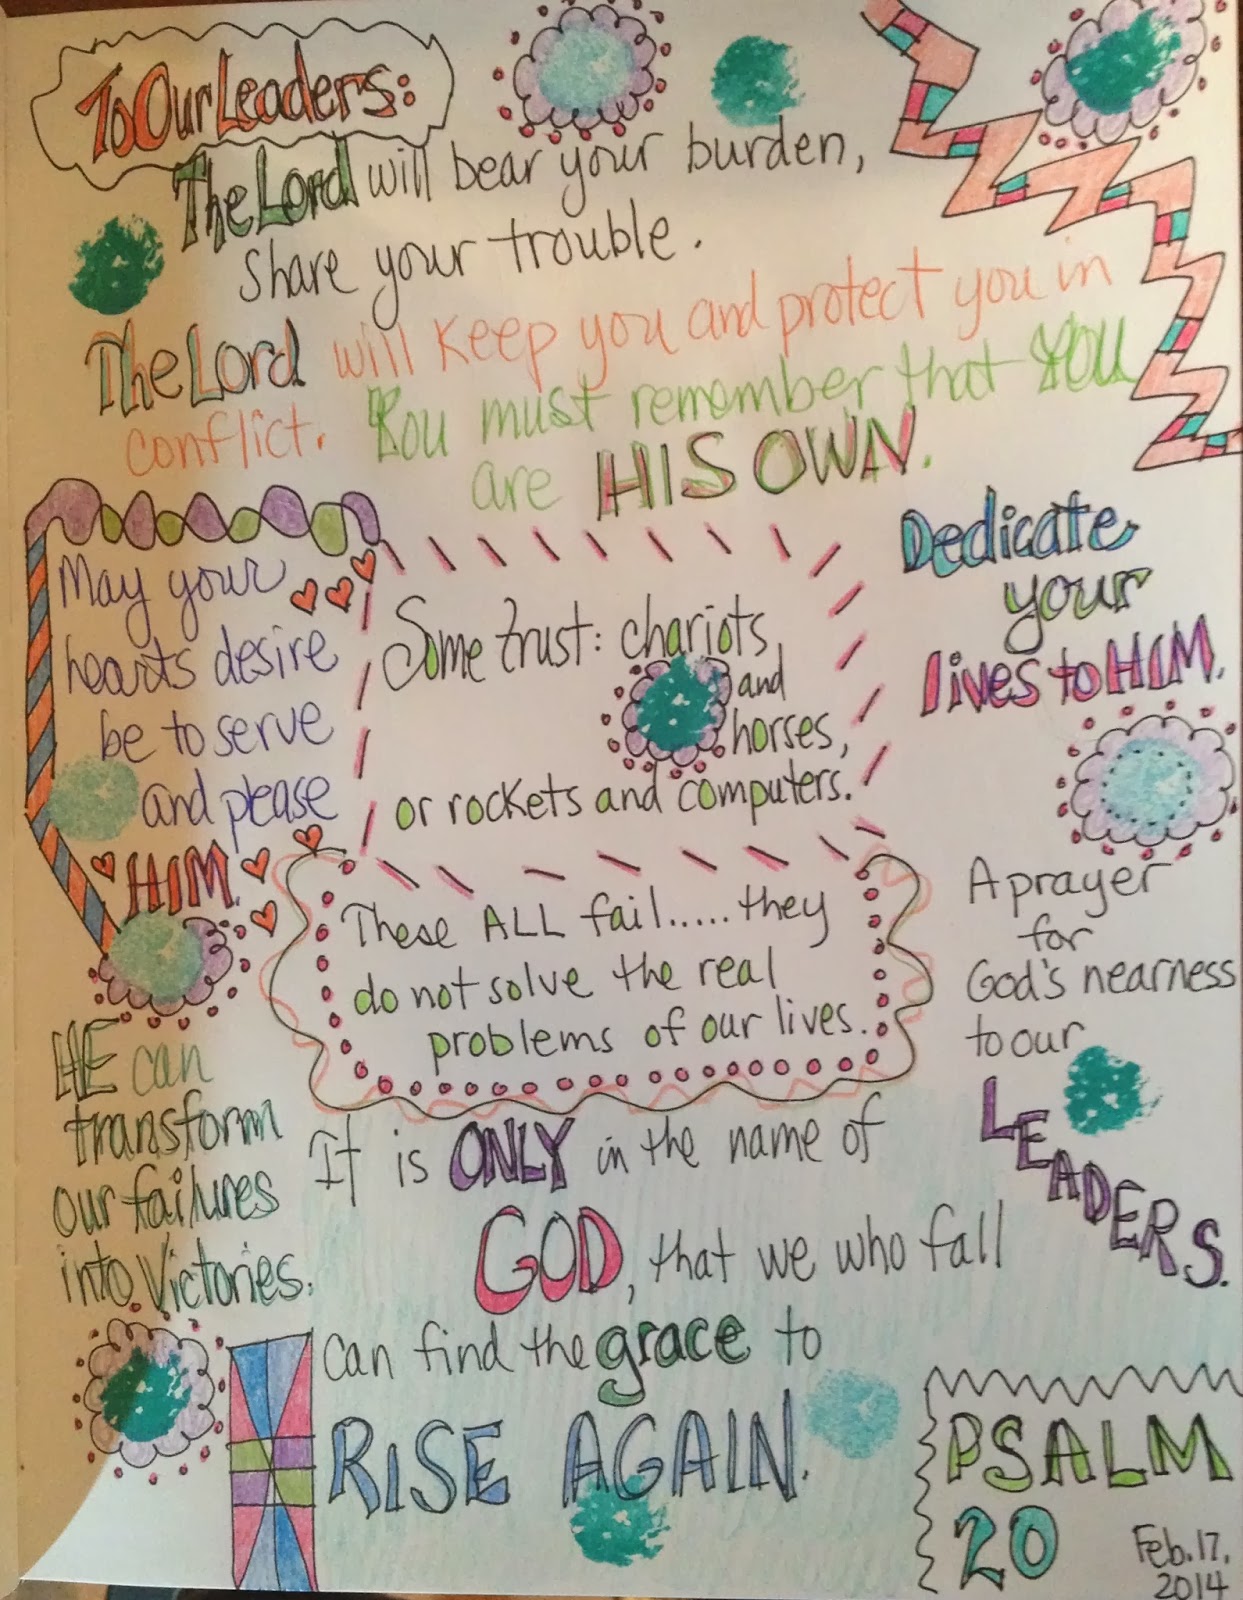 To Our Leaders:
The Lord will bear your burden,
share your trouble.
The Lord will keep you and protect you in
conflict. You must remember that You
are HIS OWN.
May your
hearts desire
be to serve
and please
HIM.
Some trust: chariots
and
horses,
or rockets and computers.
Dedicate
your
lives to HIM.
These ALL fail......they
do not solve the real
problems of our lives.
A prayer
for
God's nearness
to our
LEADERS.
HE can
transform
our failures
into Victories.
It is ONLY in the name of
GOD, that we who fall
can find the grace to
RISE AGAIN.
PSALM
20
Feb. 17,
2014